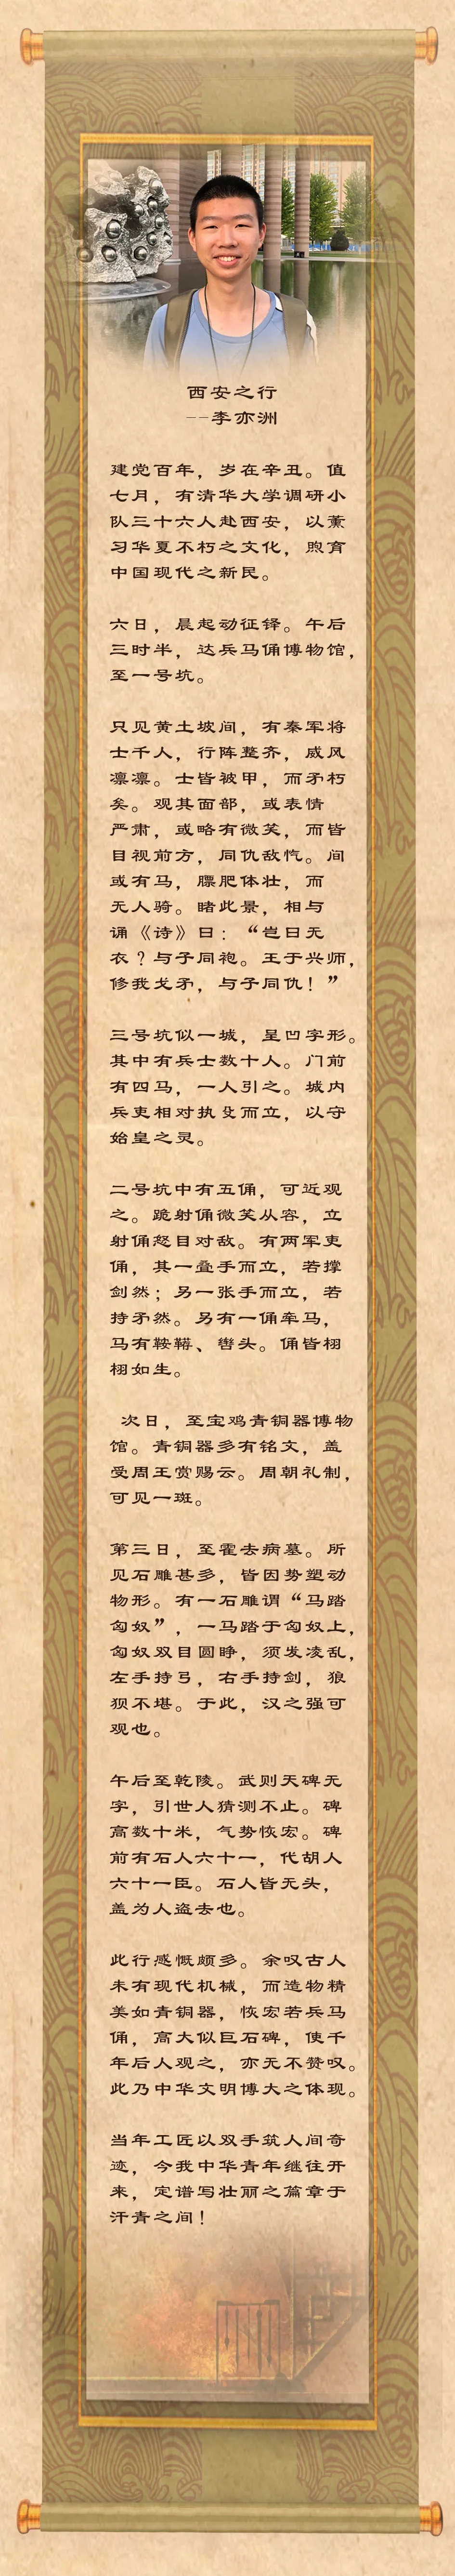 西安之行
--李亦洲
建党百年，岁在辛丑。值
七月，有清华大学调研小
队三十六人赴西安，以薰
习华夏不朽之文化，煦育
中国现代之新民。
六日，晨起动征铎。午后
三时半，达兵马俑博物馆，
至一号坑。
只见黄土坡间，有秦军将
士千人，行阵整齐，威风
凛凛。士皆被甲，而矛朽
矣。观其面部，或表情
严肃，或略有微笑，而皆
目视前方，同仇敌忾。间
或有马，膘肥体壮，而
无人骑。睹此景，相与
诵《诗》曰：“岂曰无
衣？与子同袍。王于兴师，
修我戈矛，与子同仇！”
三号坑似一城，呈凹字形。
其中有兵士数十人。门前
有四马，一人引之。城内
兵吏相对执殳而立，以守
始皇之灵。
二号坑中有五俑，可近观
之。跪射俑微笑从容，立
射俑怒目对敌。有两军吏
俑，其一叠手而立，若撑
剑然；另一张手而立，若
持矛然。另有一俑牵马，
马有鞍鞯、辔头。俑皆栩
栩如生。
次日，至宝鸡青铜器博物
馆。青铜器多有铭文，盖
受周王赏赐云。周朝礼制，
可见一斑。
第三日，至霍去病墓。所
见石雕甚多，皆因势塑动
物形。有一石雕谓“马踏
匈奴”，一马踏于匈奴上，
匈奴双目圆睁，须发凌乱，
左手持弓，右手持剑，狼
狈不堪。于此，汉之强可
观也。
午后至乾陵。武则天碑无
字，引世人猜测不止。碑
高数十米，气势恢宏。碑
前有石人六十一，代胡人
六十一臣。石人皆无头，
盖为人盗去也。
此行感慨颇多。余叹古人
未有现代机械，而造物精
美如青铜器，恢宏若兵马
俑，高大似巨石碑，使千
年后人观之，亦无不赞叹。
此乃中华文明博大之体现。
当年工匠以双手筑人间奇
迹，今我中华青年继往开
来，定谱写壮丽之篇章于
汗青之间！